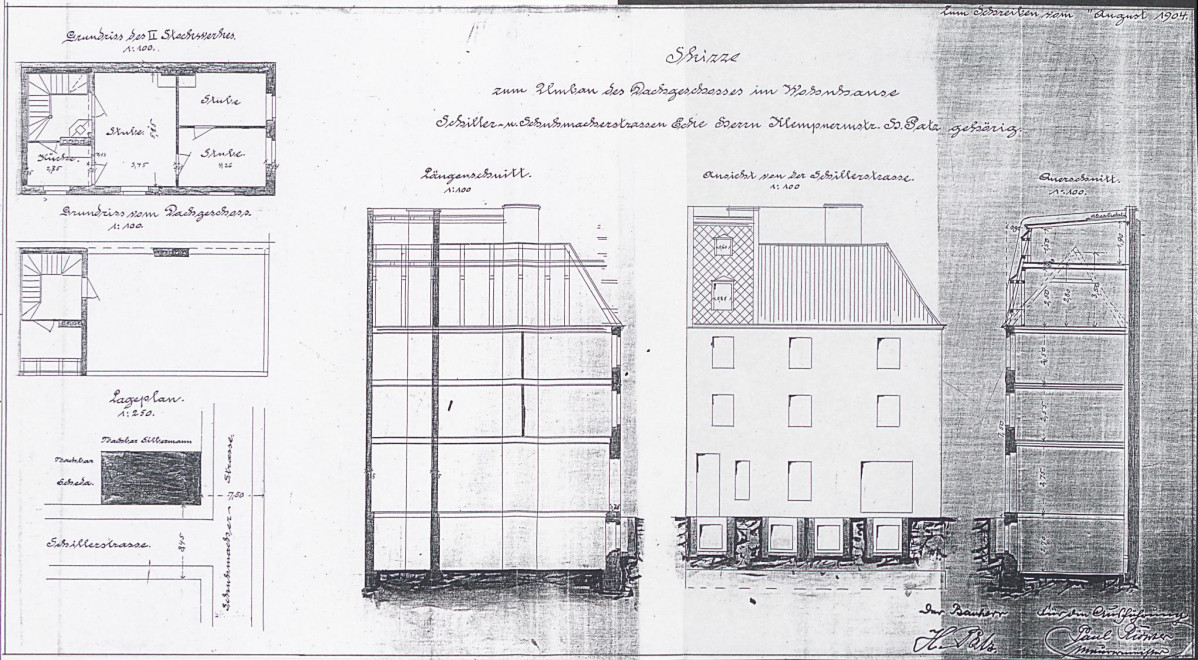 Zum Schreiben vom " August 1904.
Skizze
zum Umbau des Dachgeschosses im Wohnhause
Schiller- u. Schuhmacherstrassen Ecke Herrn Klempnermstr. H. Patz gehörig.
Grundriss des II Stockwerkes.
1:100.
Stube
Stube.
Stube
Küche.
2,75
3,75
Grundriss vom Dachgeschoss.
1:100.
Lageplan.
1:250.
Nachbar Silbermann
Nachbar
Scheda.
Schillerstrasse.
Schuhmacher- Strasse.
7,50
8,45
Längenschnitt.
1:100
Ansicht von der Schillerstrasse.
1:100
Querschnitt.
1:100.
Der Bauherr
H. Patz
Für die Ausführung
Paul
Maurermeister